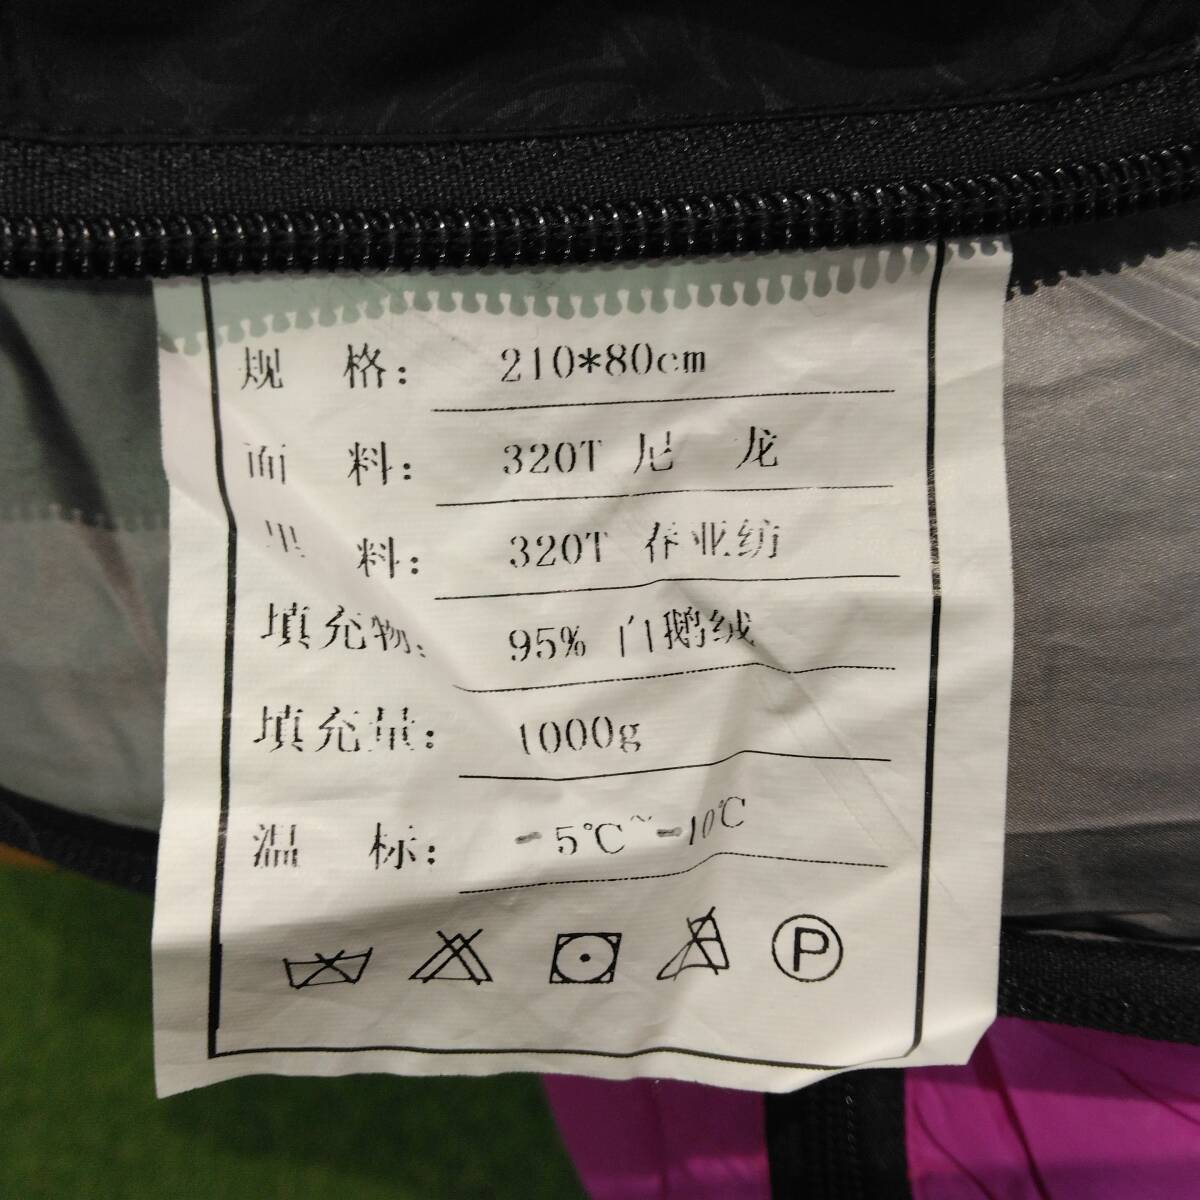 规 格: 210*80cm
面 料: 320T 尼 龙
里 料: 320T 春亚纺
填充物: 95% 白鹅绒
填充量: 1000g
温 标: -5℃~-10℃
P